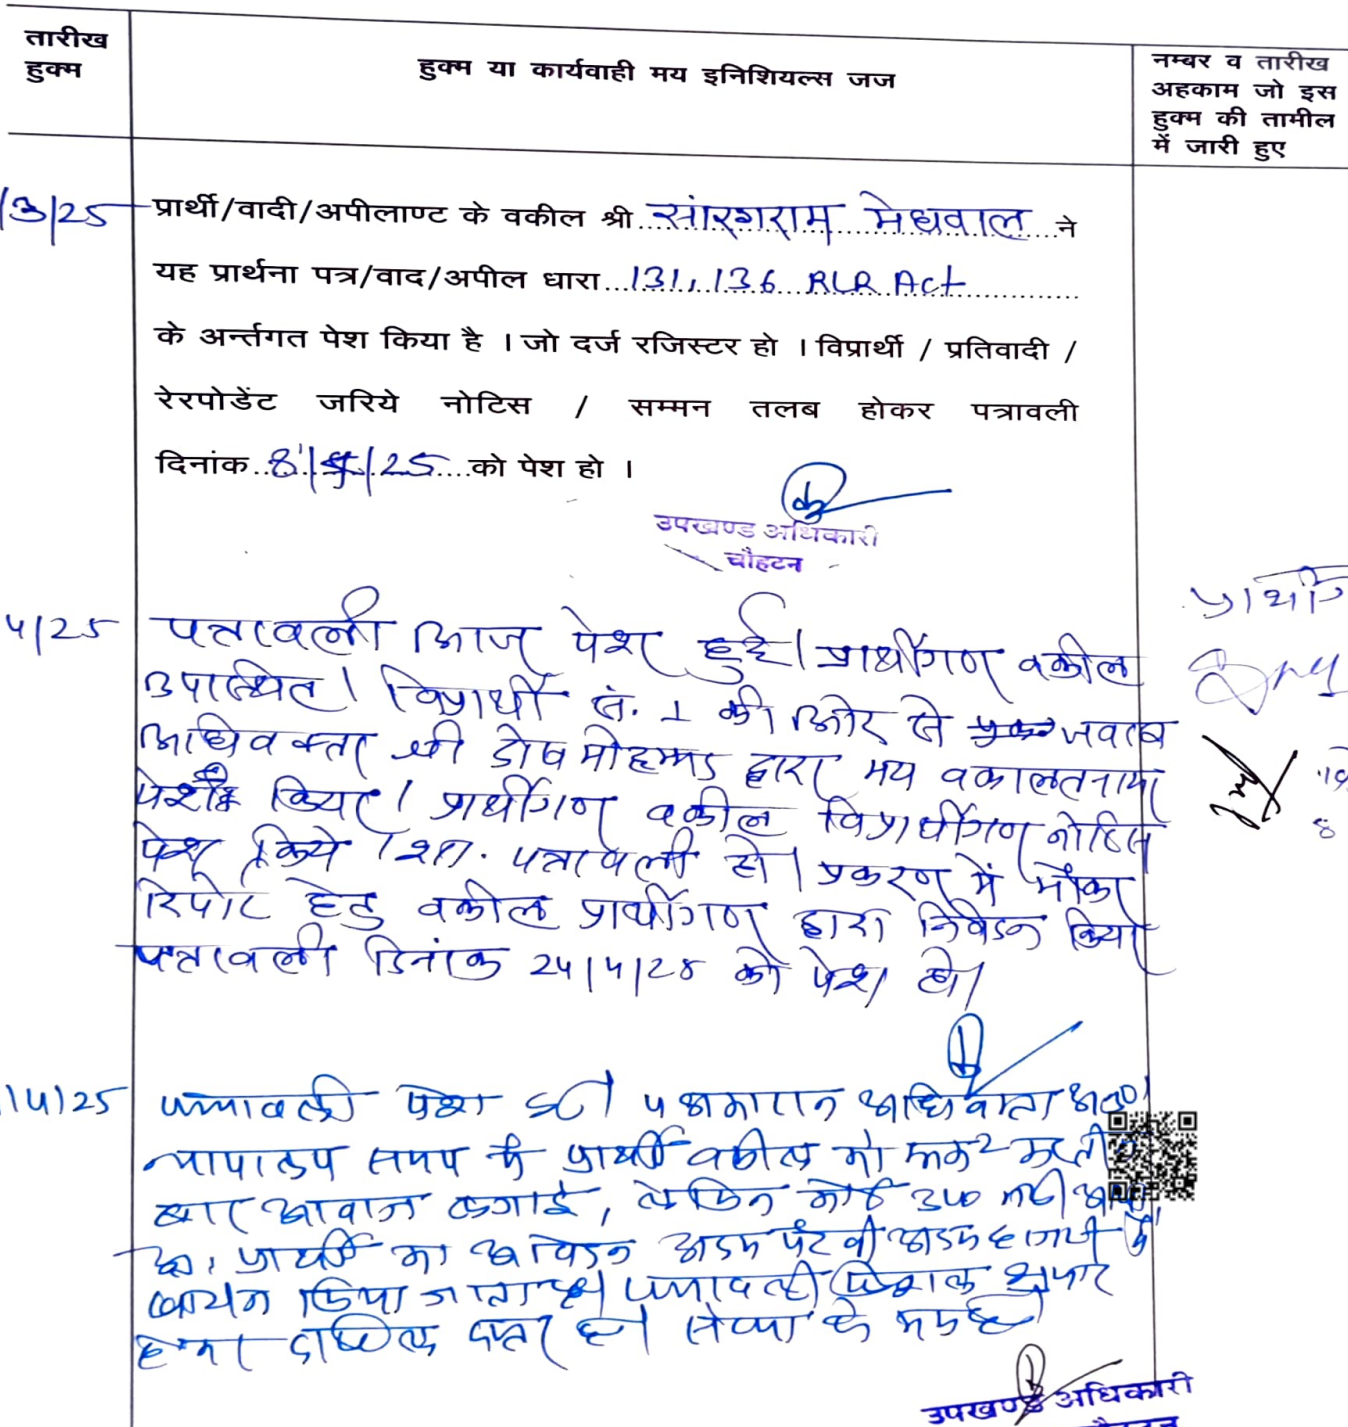 तारीख
हुक्म
हुक्म या कार्यवाही मय इनिशियल्स जज
नम्बर व तारीख
अहकाम जो इस
हुक्म की तामील
में जारी हुए
/3/25
प्रार्थी/वादी/अपीलाण्ट के वकील श्री सांरगराम मेघवाल ने
यह प्रार्थना पत्र/वाद/अपील धारा 131, 136 RLR Act
के अर्न्तगत पेश किया है । जो दर्ज रजिस्टर हो । विप्रार्थी / प्रतिवादी /
रेरपोडेंट जरिये नोटिस / सम्मन तलब होकर पत्रावली
दिनांक 8/4/25 को पेश हो ।
उपखण्ड अधिकारी
चौहटन
4/25
पत्रावली आज पेश हुई। प्रार्थीगण वकील
उपस्थित। विप्रार्थी सं. 1 की ओर से जवाब
अधिवक्ता श्री दोष मोहम्मद द्वारा मय वकालतनामा
पेश किया। प्रार्थीगण वकील विप्रार्थीगण नोटिस
पेश किये। शा. पत्रावली हो। प्रकरण में मौका
रिपोर्ट हेतु वकील प्रार्थीगण द्वारा निवेदन किया
पत्रावली दिनांक 24/4/25 को पेश हो।
प्रार्थी
/4/25
पत्रावली पेश हुई। अधिवक्ता
न्यायालय समय में प्रार्थी वकील को
बार आवाज लगाई, लेकिन कोई उप० नही
प्रार्थी का आवेदन अदम पैरवी अदम हाजरी में
खारिज किया जाता है। पत्रावली फैसल शुमार
होकर दाखिल दफ्तर हो।
उपखण्ड अधिकारी